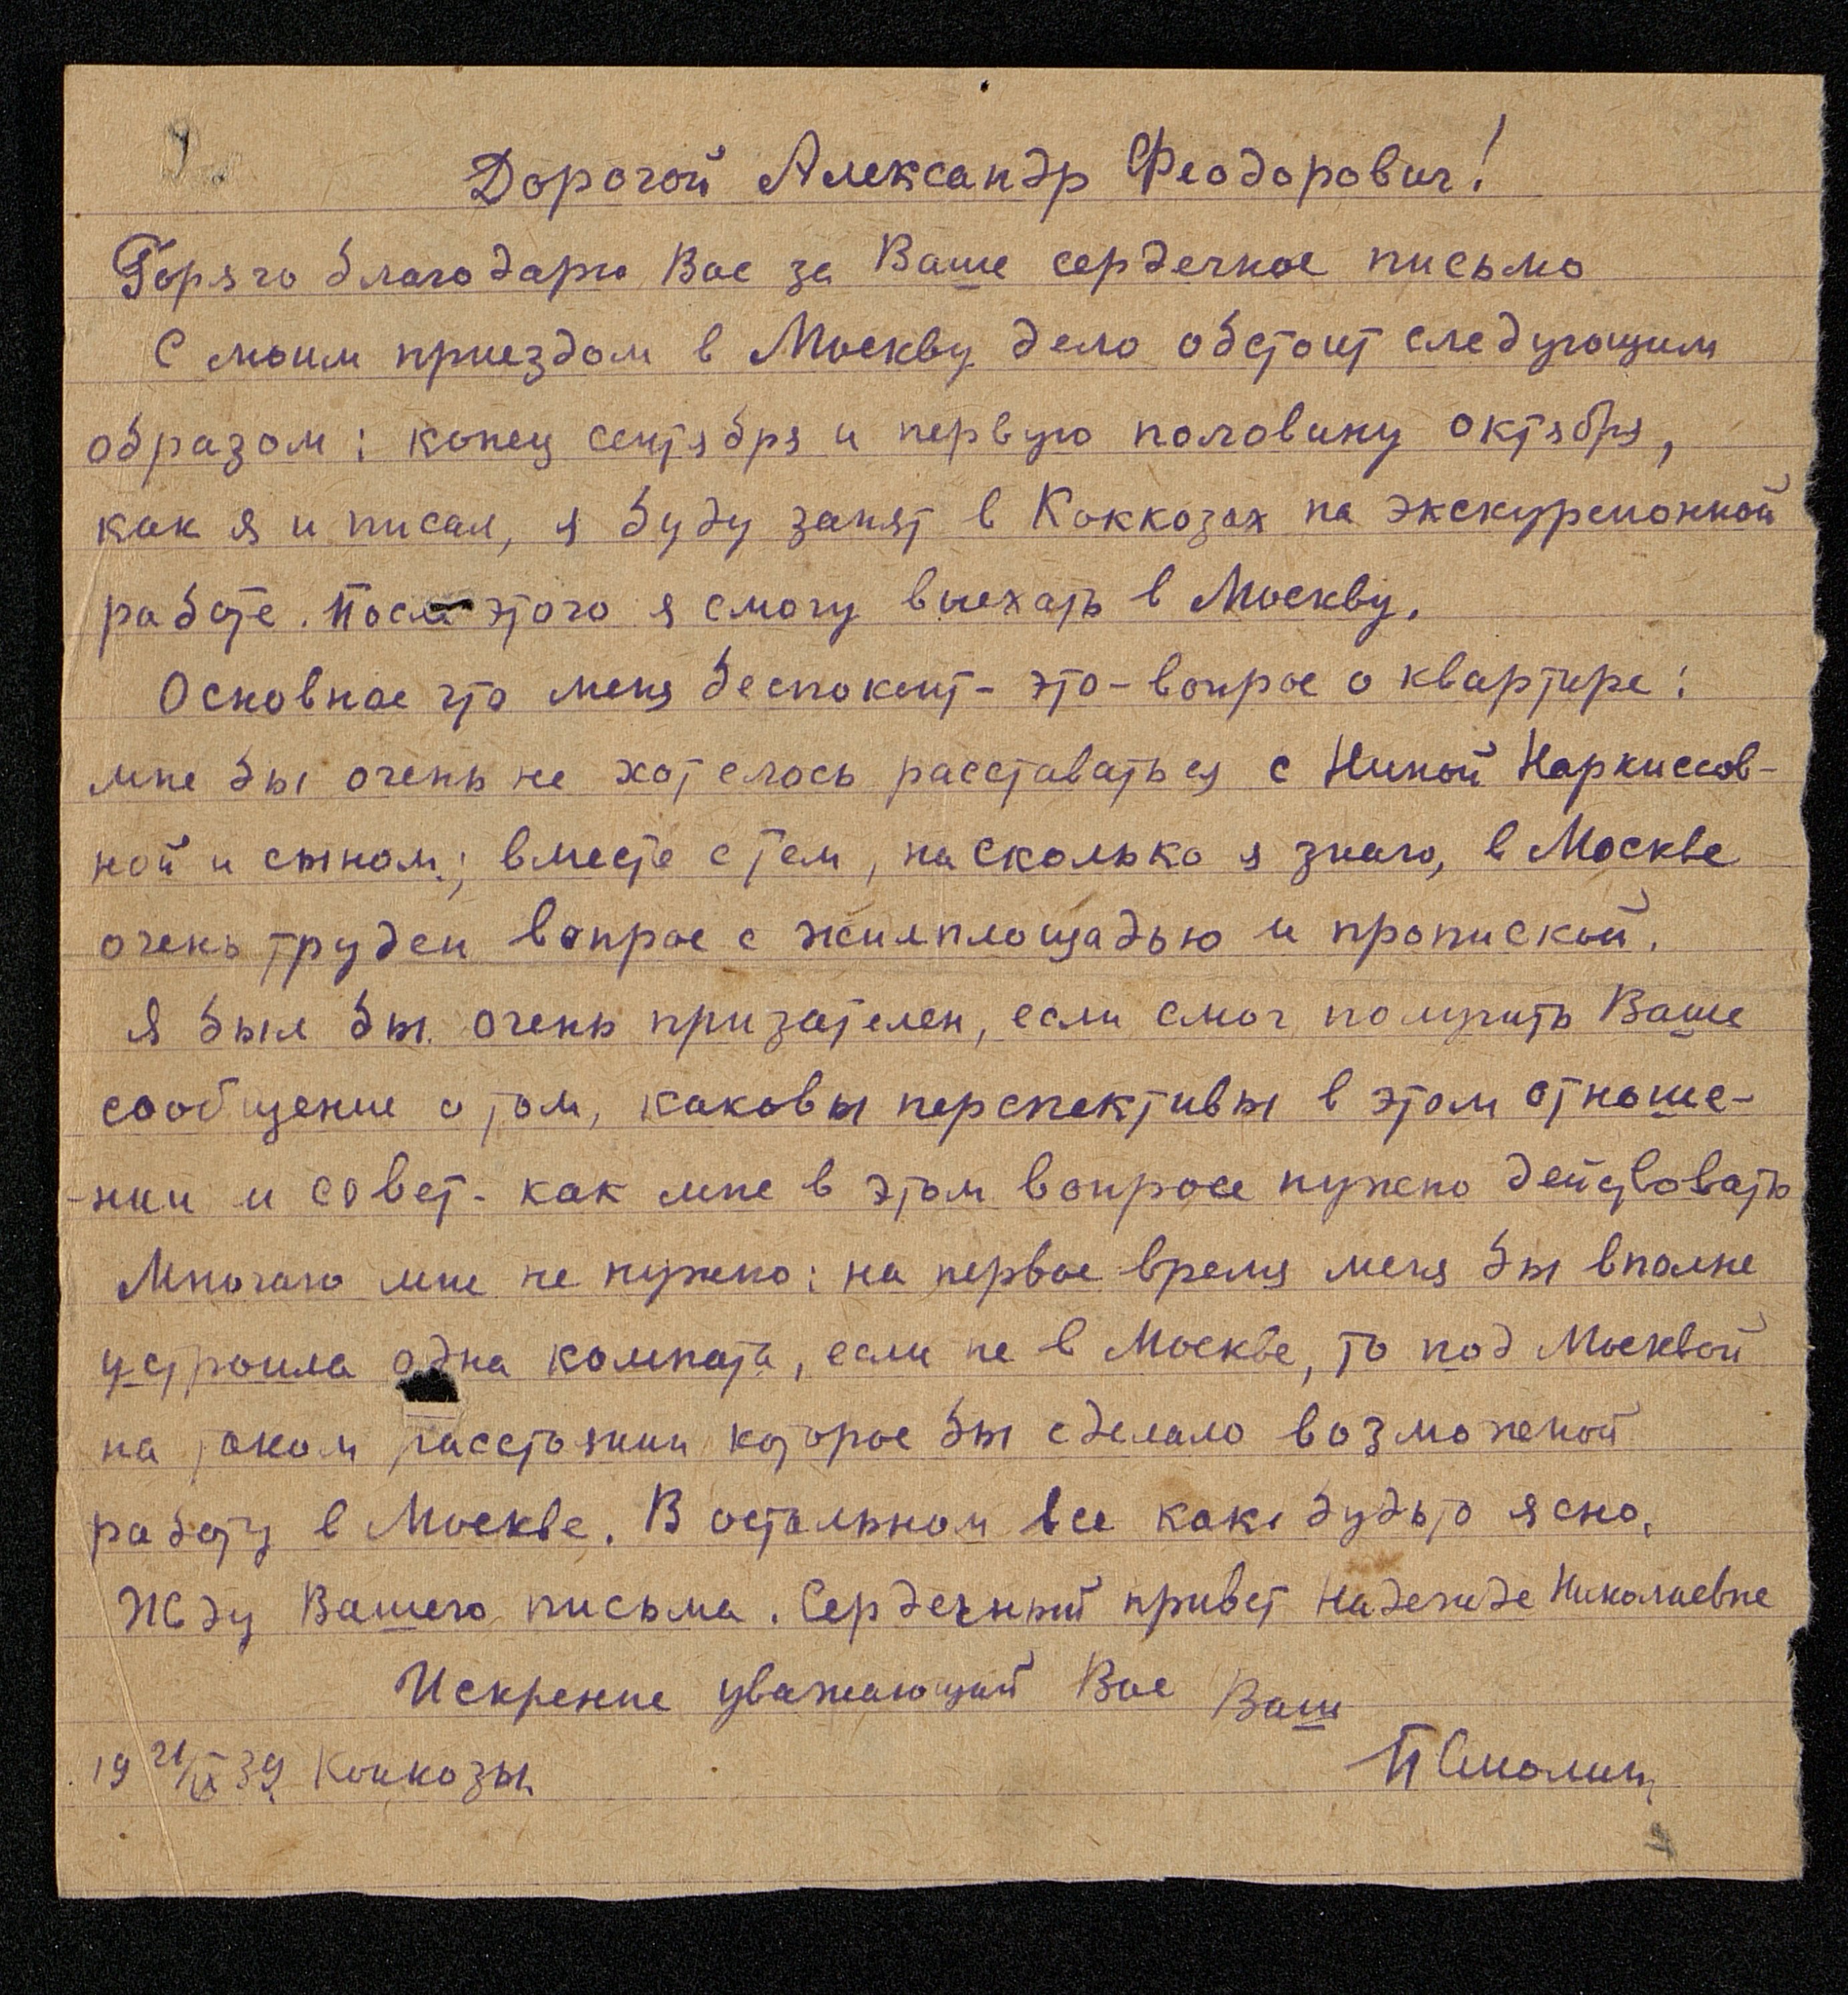 Дорогой Александр Феодорович!
Горячо благодарю Вас за Ваше сердечное письмо
С моим приездом в Москву дело обстоит следующим
образом: конец сентября и первую половину октября,
как я и писал, я буду занят в Коккозах на экскурсионной
работе. После этого я смогу выехать в Москву.
Основное что меня беспокоит - это - вопрос о квартире:
мне бы очень не хотелось расставаться с Ниной Наркиссов-
ной и сыном; вместе с тем, насколько я знаю, в Москве
очень труден вопрос с жилплощадью и пропиской.
Я был бы очень призателен, если смог получить Ваше
сообщение о том, каковы перспективы в этом отноше-
-нии и совет - как мне в этом вопросе нужно действовать
Многого мне не нужно: на первое время меня бы вполне
устроила одна комната, если не в Москве, то под Москвой
на таком расстоянии которое бы сделало возможной
работу в Москве. В остальном все как будьто ясно.
Жду Вашего письма. Сердечный привет Надежде Николаевне
Искренне уважающий Вас Ваш
19 21/IX 39 Коккозы
П Смолин